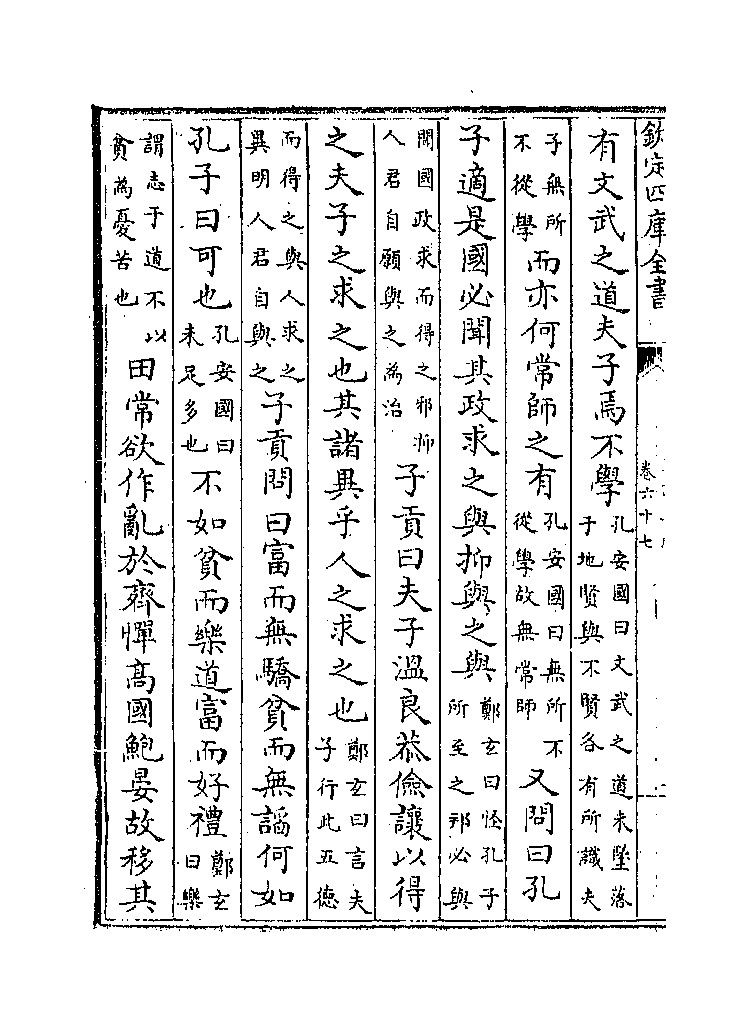 欽定四庫全書
卷六十七
有文武之道夫子焉不學孔安國曰文武之道未墜落于地賢與不賢各有所識夫
子無所不從學而亦何常師之有孔安國曰無所不從學故無常師又問曰孔
子適是國必聞其政求之與抑與之與鄭玄曰怪孔子所至之邦必與
聞國政求而得之邪抑人君自願與之為治子貢曰夫子溫良恭儉讓以得
之夫子之求之也其諸異乎人之求之也鄭玄曰言夫子行此五德
而得之與人求之異明人君自與之子貢問曰富而無驕貧而無謟何如
孔子曰可也孔安國曰未足多也不如貧而樂道富而好禮鄭玄曰樂
謂志于道不以貧為憂苦也田常欲作亂於齊憚高國鮑晏故移其